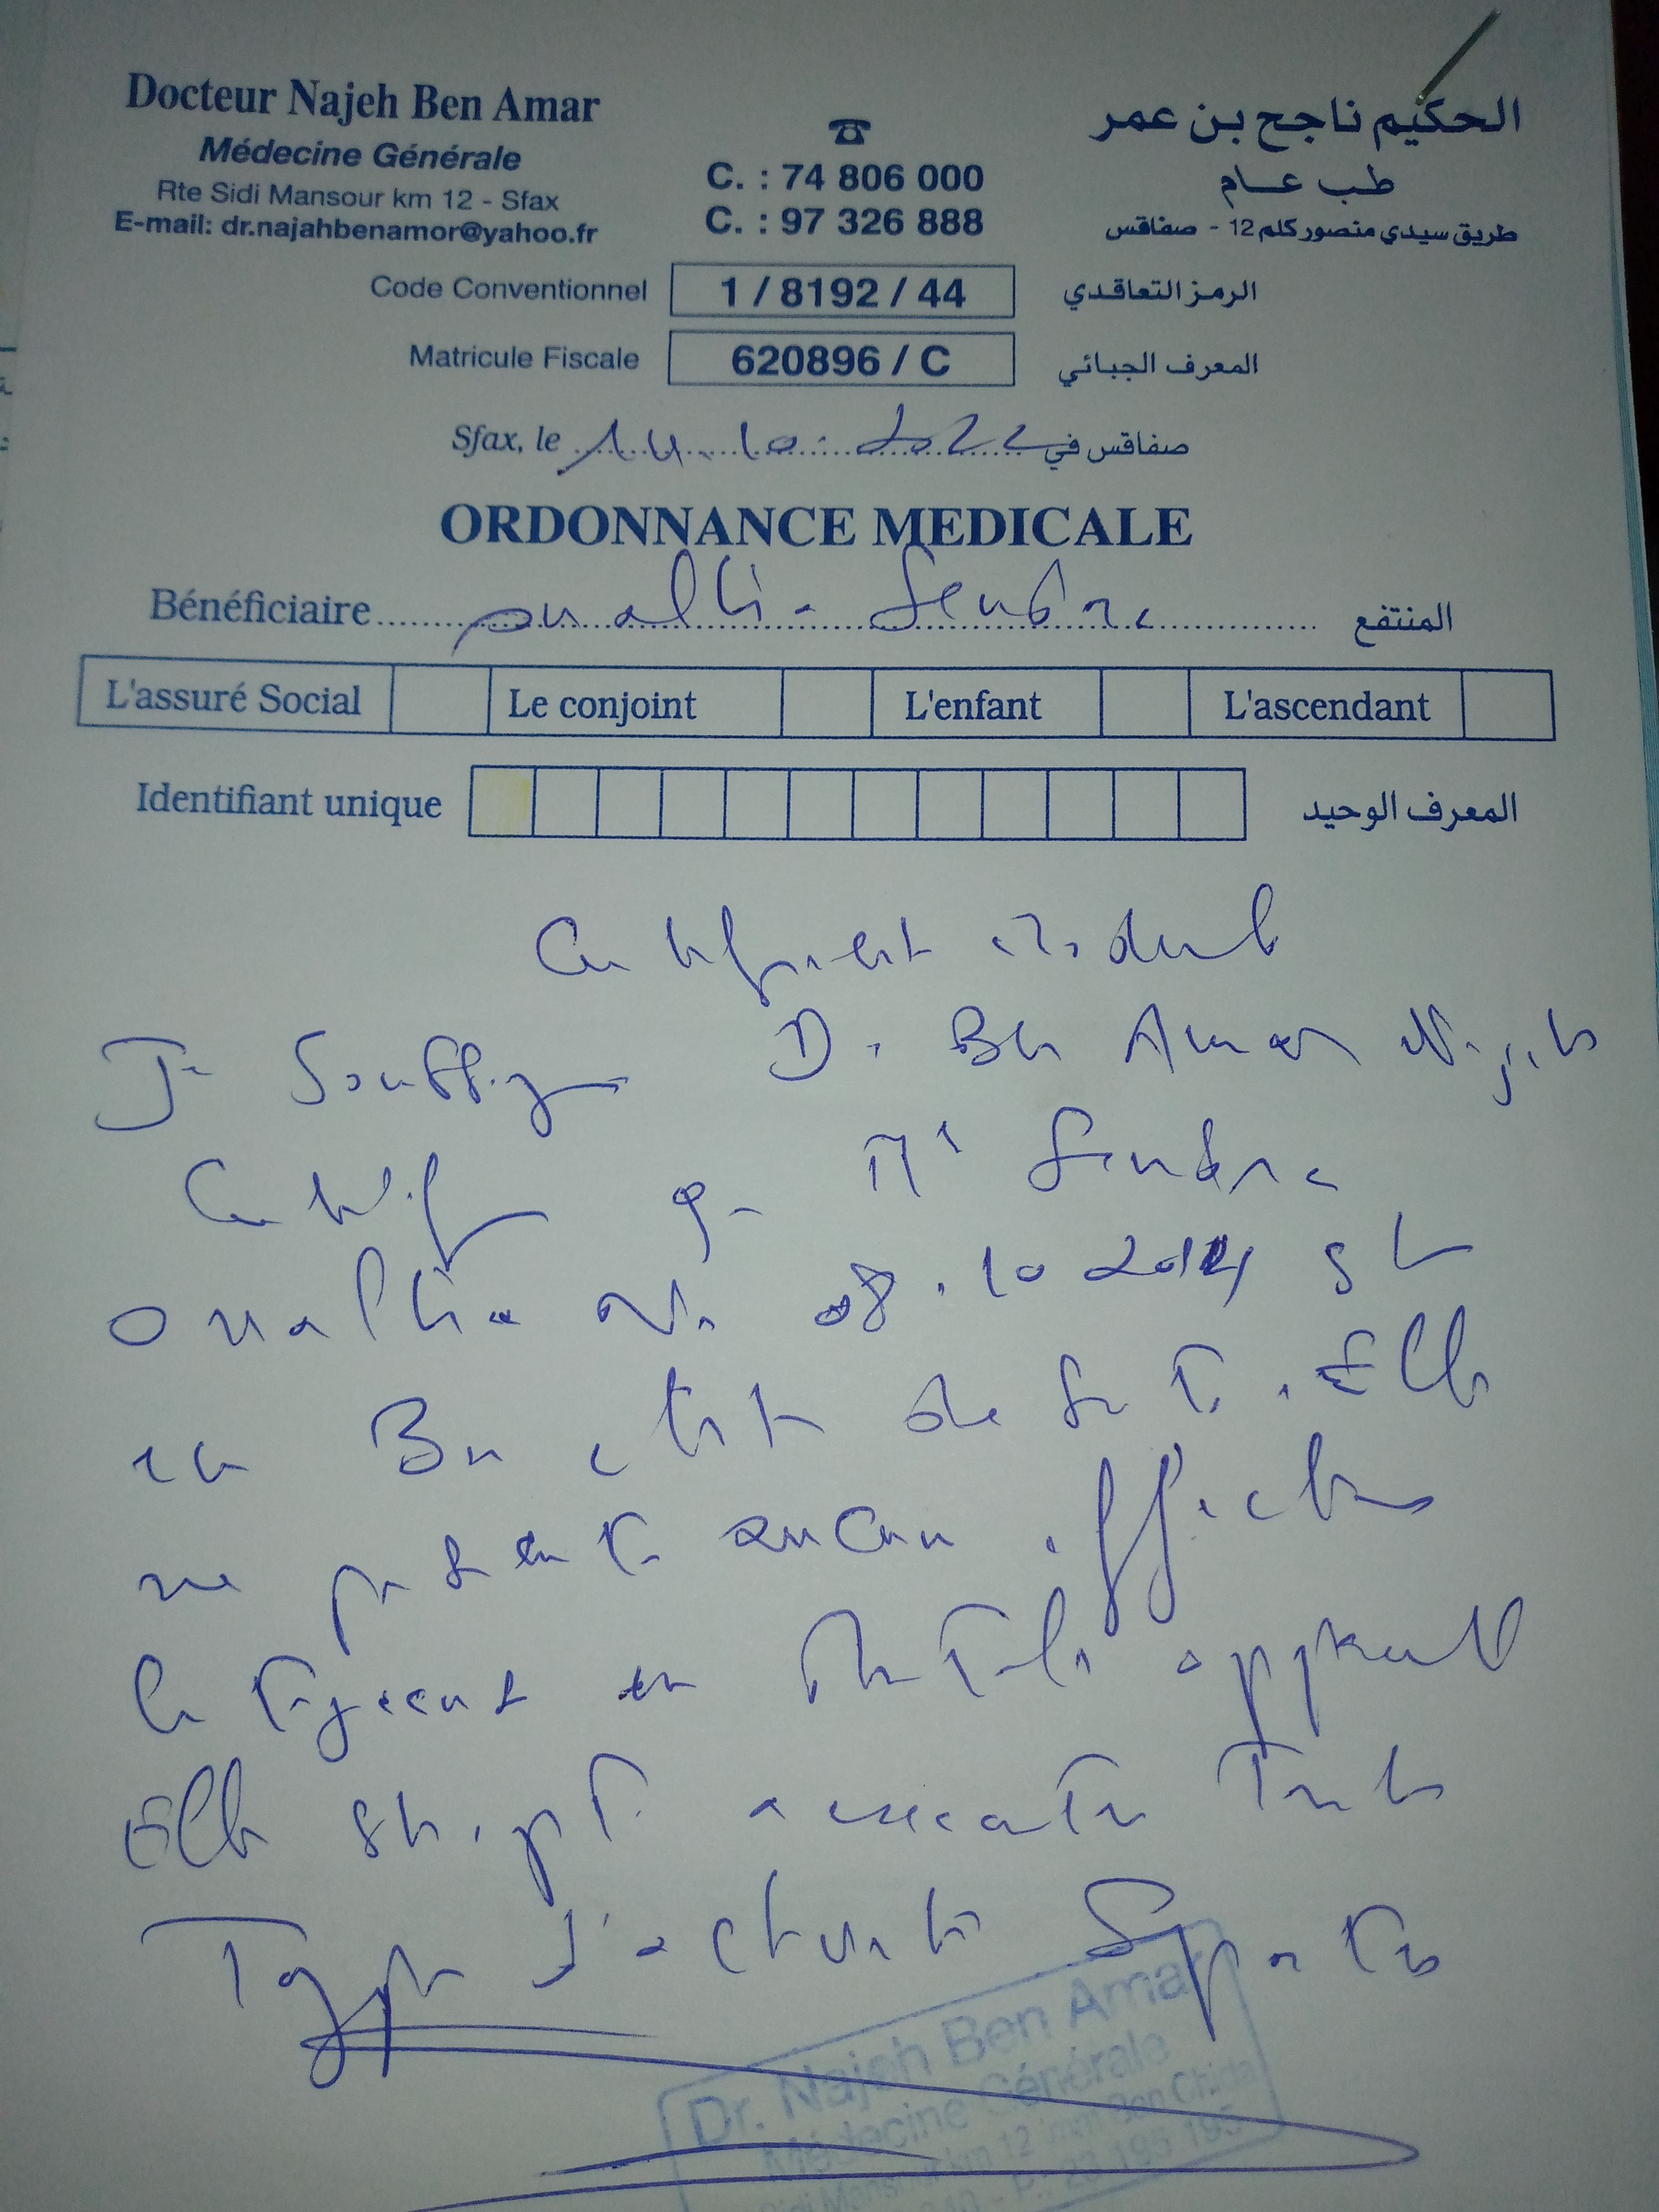 Docteur Najeh Ben Amar
Médecine Générale
Rte Sidi Mansour km 12 - Sfax
E-mail: dr.najahbenamor@yahoo.fr
☎
C. : 74 806 000
C. : 97 326 888
الحكيم ناجح بن عمر
طب عام
طريق سيدي منصور كلم 12 - صفاقس
Code Conventionnel 1 / 8192 / 44 الرمز التعاقدي
Matricule Fiscale 620896 / C المعرف الجبائي
Sfax, le 14.10.2022 صفاقس في
ORDONNANCE MEDICALE
Bénéficiaire المنتفع
L'assuré Social Le conjoint L'enfant L'ascendant
Identifiant unique المعرف الوحيد
Certificat médical
Je soussigné Dr Ben Amar Najeh
Certifie que
08.10.2014 est
en Bon état de santé. Elle
ne présente aucune affection
contagieuse ou mentale apparente
Elle est apte à exercer tous
Type d'activité Sportive
Dr. Najeh Ben Amar
Médecine Générale
Sidi Mansour km 12